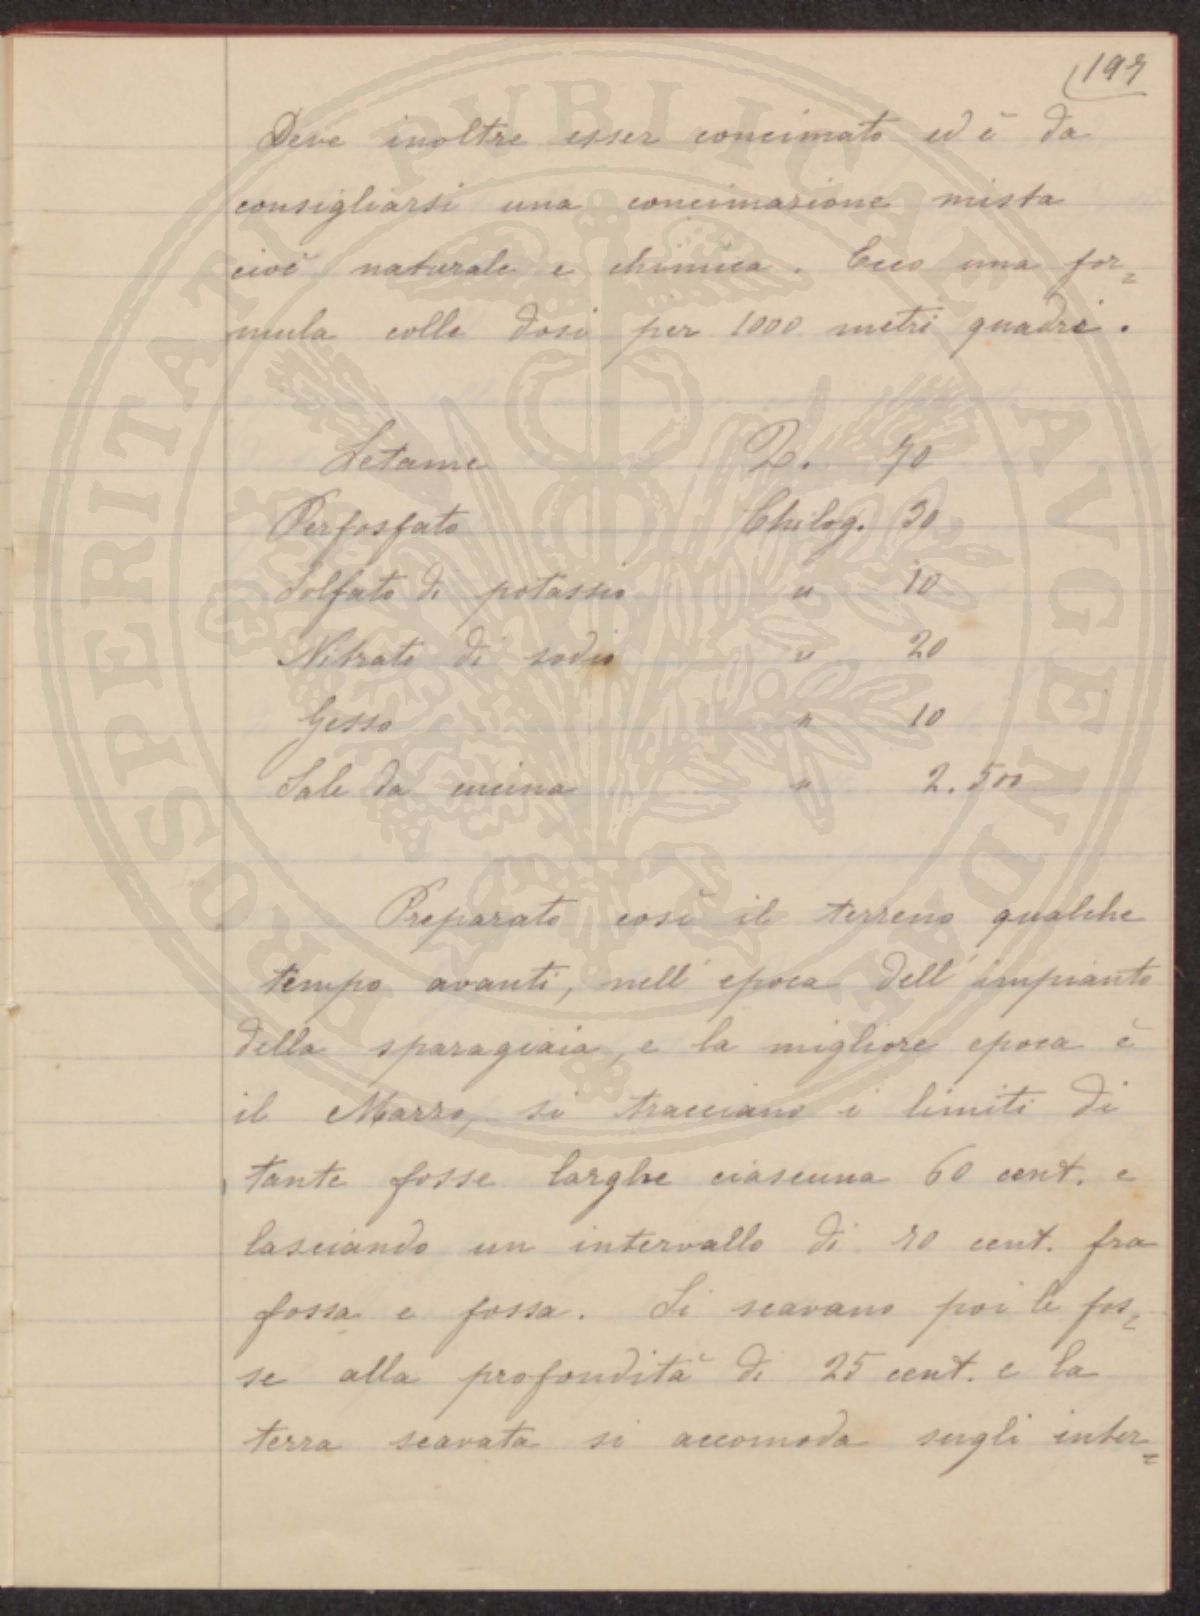 197
Deve inoltre esser concimato ed è da
consigliarsi una concimazione mista
cioè naturale e chimica. Ecco una for=
mula colle dosi per 1000 metri quadri.
Letame Q. 70
Perfosfato Chilog. 30
Solfato di potassio " 10
Nitrato di sodio " 20
Gesso " 10
Sale da cucina " 2.500
Preparato così il terreno qualche
tempo avanti, nell'epoca dell'impianto
della sparagiaia, e la migliore epoca è
il Marzo, si tracciano i limiti di
tante fosse larghe ciascuna 60 cent. e
lasciando un intervallo di 70 cent. fra
fossa e fossa. Si scavano poi le fos=
se alla profondità di 25 cent. e la
terra scavata si accomoda sugli inter=
PROSPERITATI PVBLICAE AVGENDAE